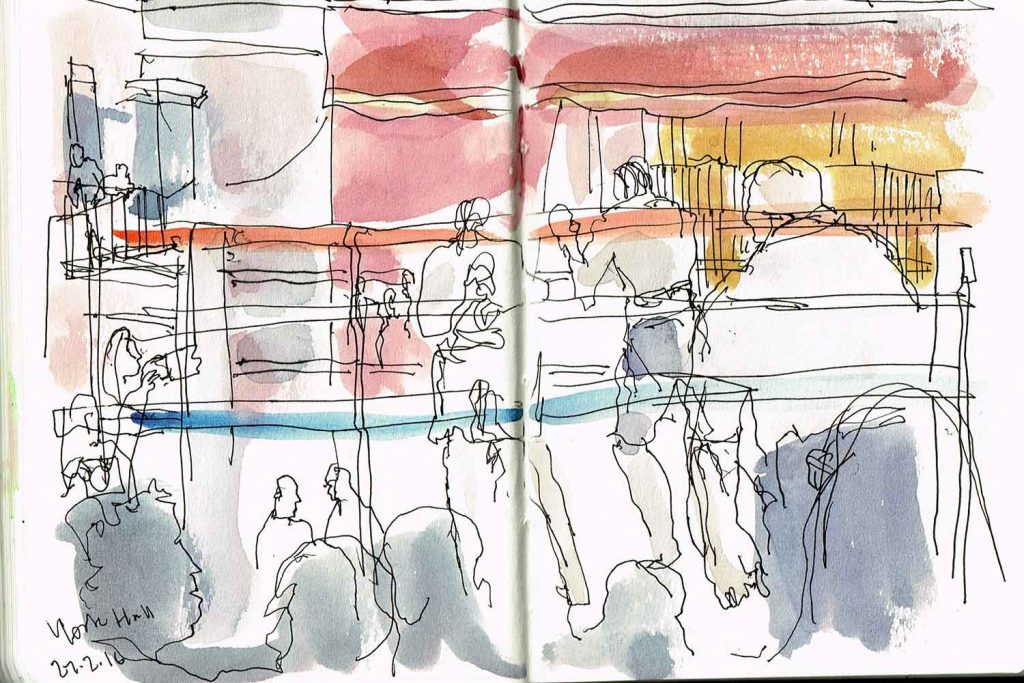 York Hall
22.2.16